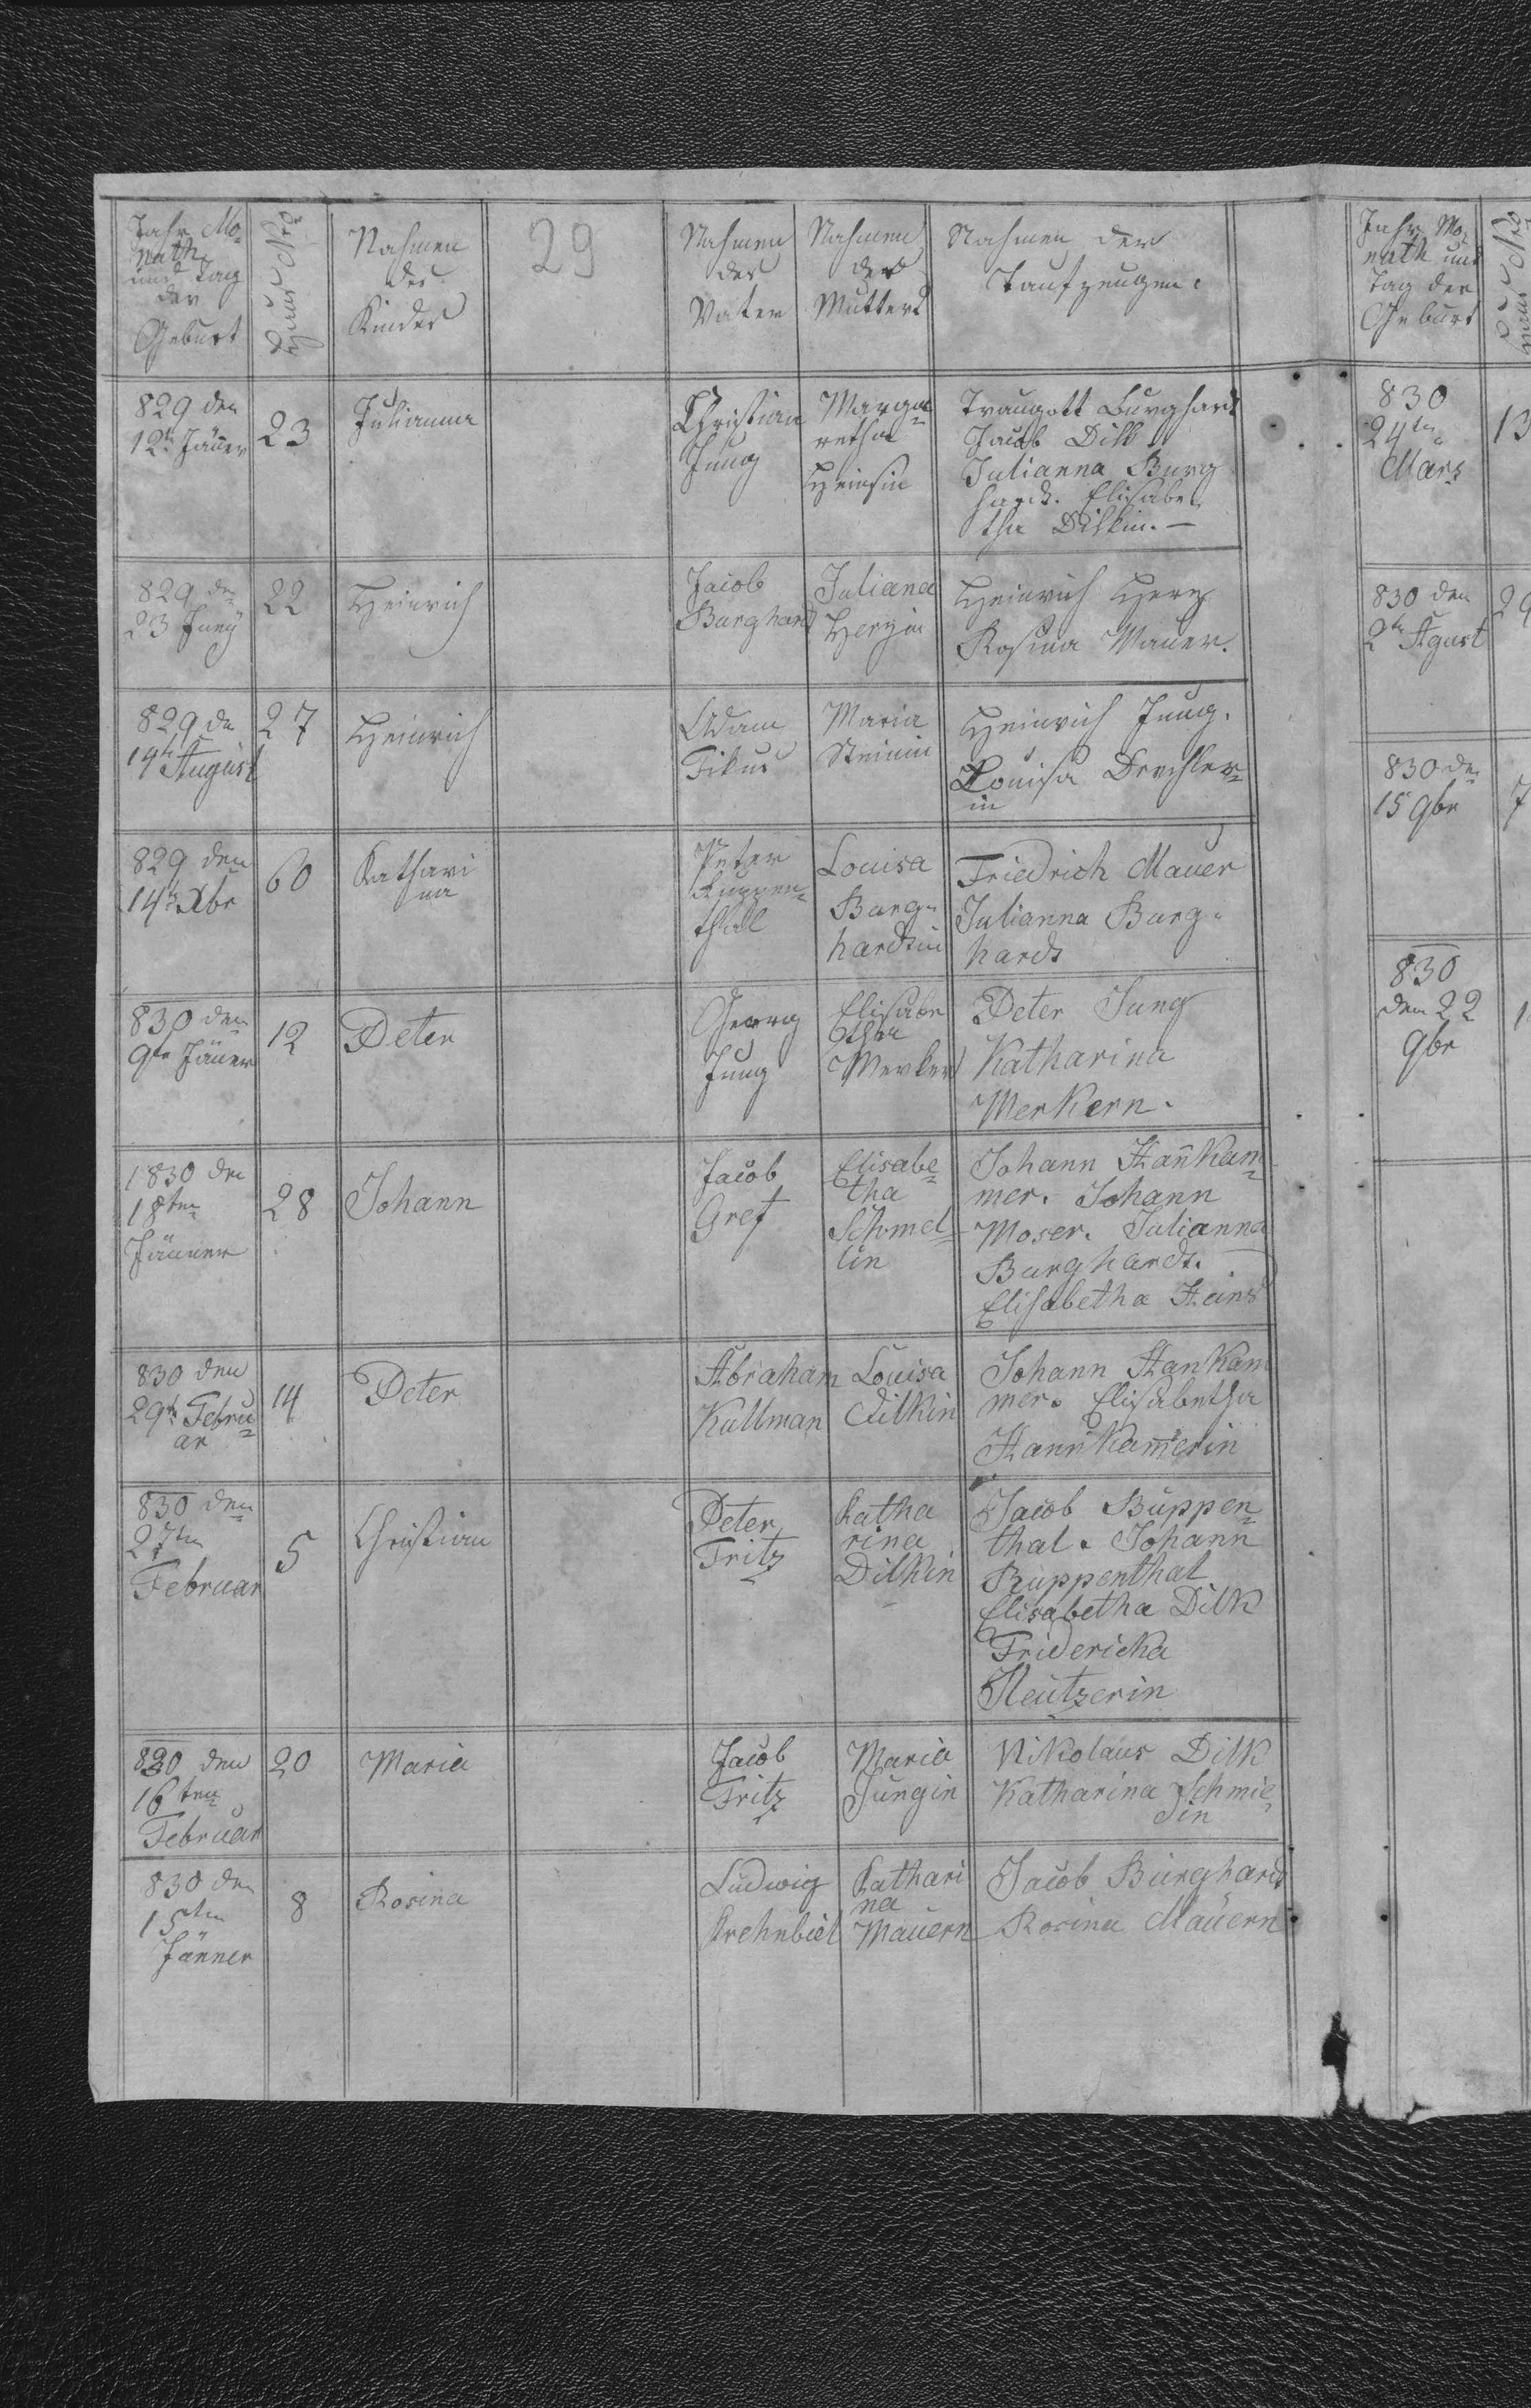 Jahr Mo-
nath
und Tag
der
Geburt
Haus Nro
Nahmen
des
Kindes
29
Nahmen
des
Vater
Nahmen
der
Mutters
Nahmen der
Taufzeugen.
829 den
12t Jäner
23
Julianna
Christian
Jung
Marga-
retha
Heinsin
Traugott Burghard
Jacob Dilk
Julianna Burg
hardt. Elisabe
tha Dilkin.
829 den
23 Juny
22
Heinrich
Jacob
Burghard
Juliana
Herzin
Heinrich Herz
Rosina Mauer.
829 den
14t August
27
Heinrich
Adam
Fikus
Maria
Steinin
Heinrich Jung.
Louisa Drechsler-
in
829 den
14t Xbr
60
Kathari
na
Peter
Ruppen-
thal
Louisa
Burg-
hardtin
Friedrich Mauer
Julianna Burg-
hardt
830 den
9te Jäner
12
Peter
Georg
Jung
Elisabe
tha
Merker
Peter Jung
Katharina
Merkern.
1830 den
18ten
Jänner
28
Johann
Jacob
Gref
Elisabe-
tha
Schmel-
lin
Johann Han̅kam-
mer. Johann
Moser. Julianna
Burghardt.
Elisabetha Heins
830 den
29t Febru-
ar
14
Peter
Abraham
Kullman
Louisa
Dilkin
Johann Hankam
mer. Elisabetha
Hannkam̅erin
830 den
27ten
Februar
5
Christian
Peter
Fritz
Katha
rina
Dilkin
Jacob Ruppen-
thal. Johann
Ruppenthal
Elisabetha Dilk
Fridericka
Kleutzerin
830 den
16ten
Februar
20
Maria
Jacob
Fritz
Maria
Jungin
Nikolaus Dilk
Katharina Schmie-
din
830 den
15ten
Jänner
8
Rosina
Ludwig
Krehnbiel
Kathari
na
Mauern
Jacob Burghard
Rosina Mauern
Jahr Mo-
nath und
Tag der
Geburt
Haus Nro
830
24ten
Marz
13
830 den
2te Agust
29
830 den
15 9br
7
830
den 22
9br
1